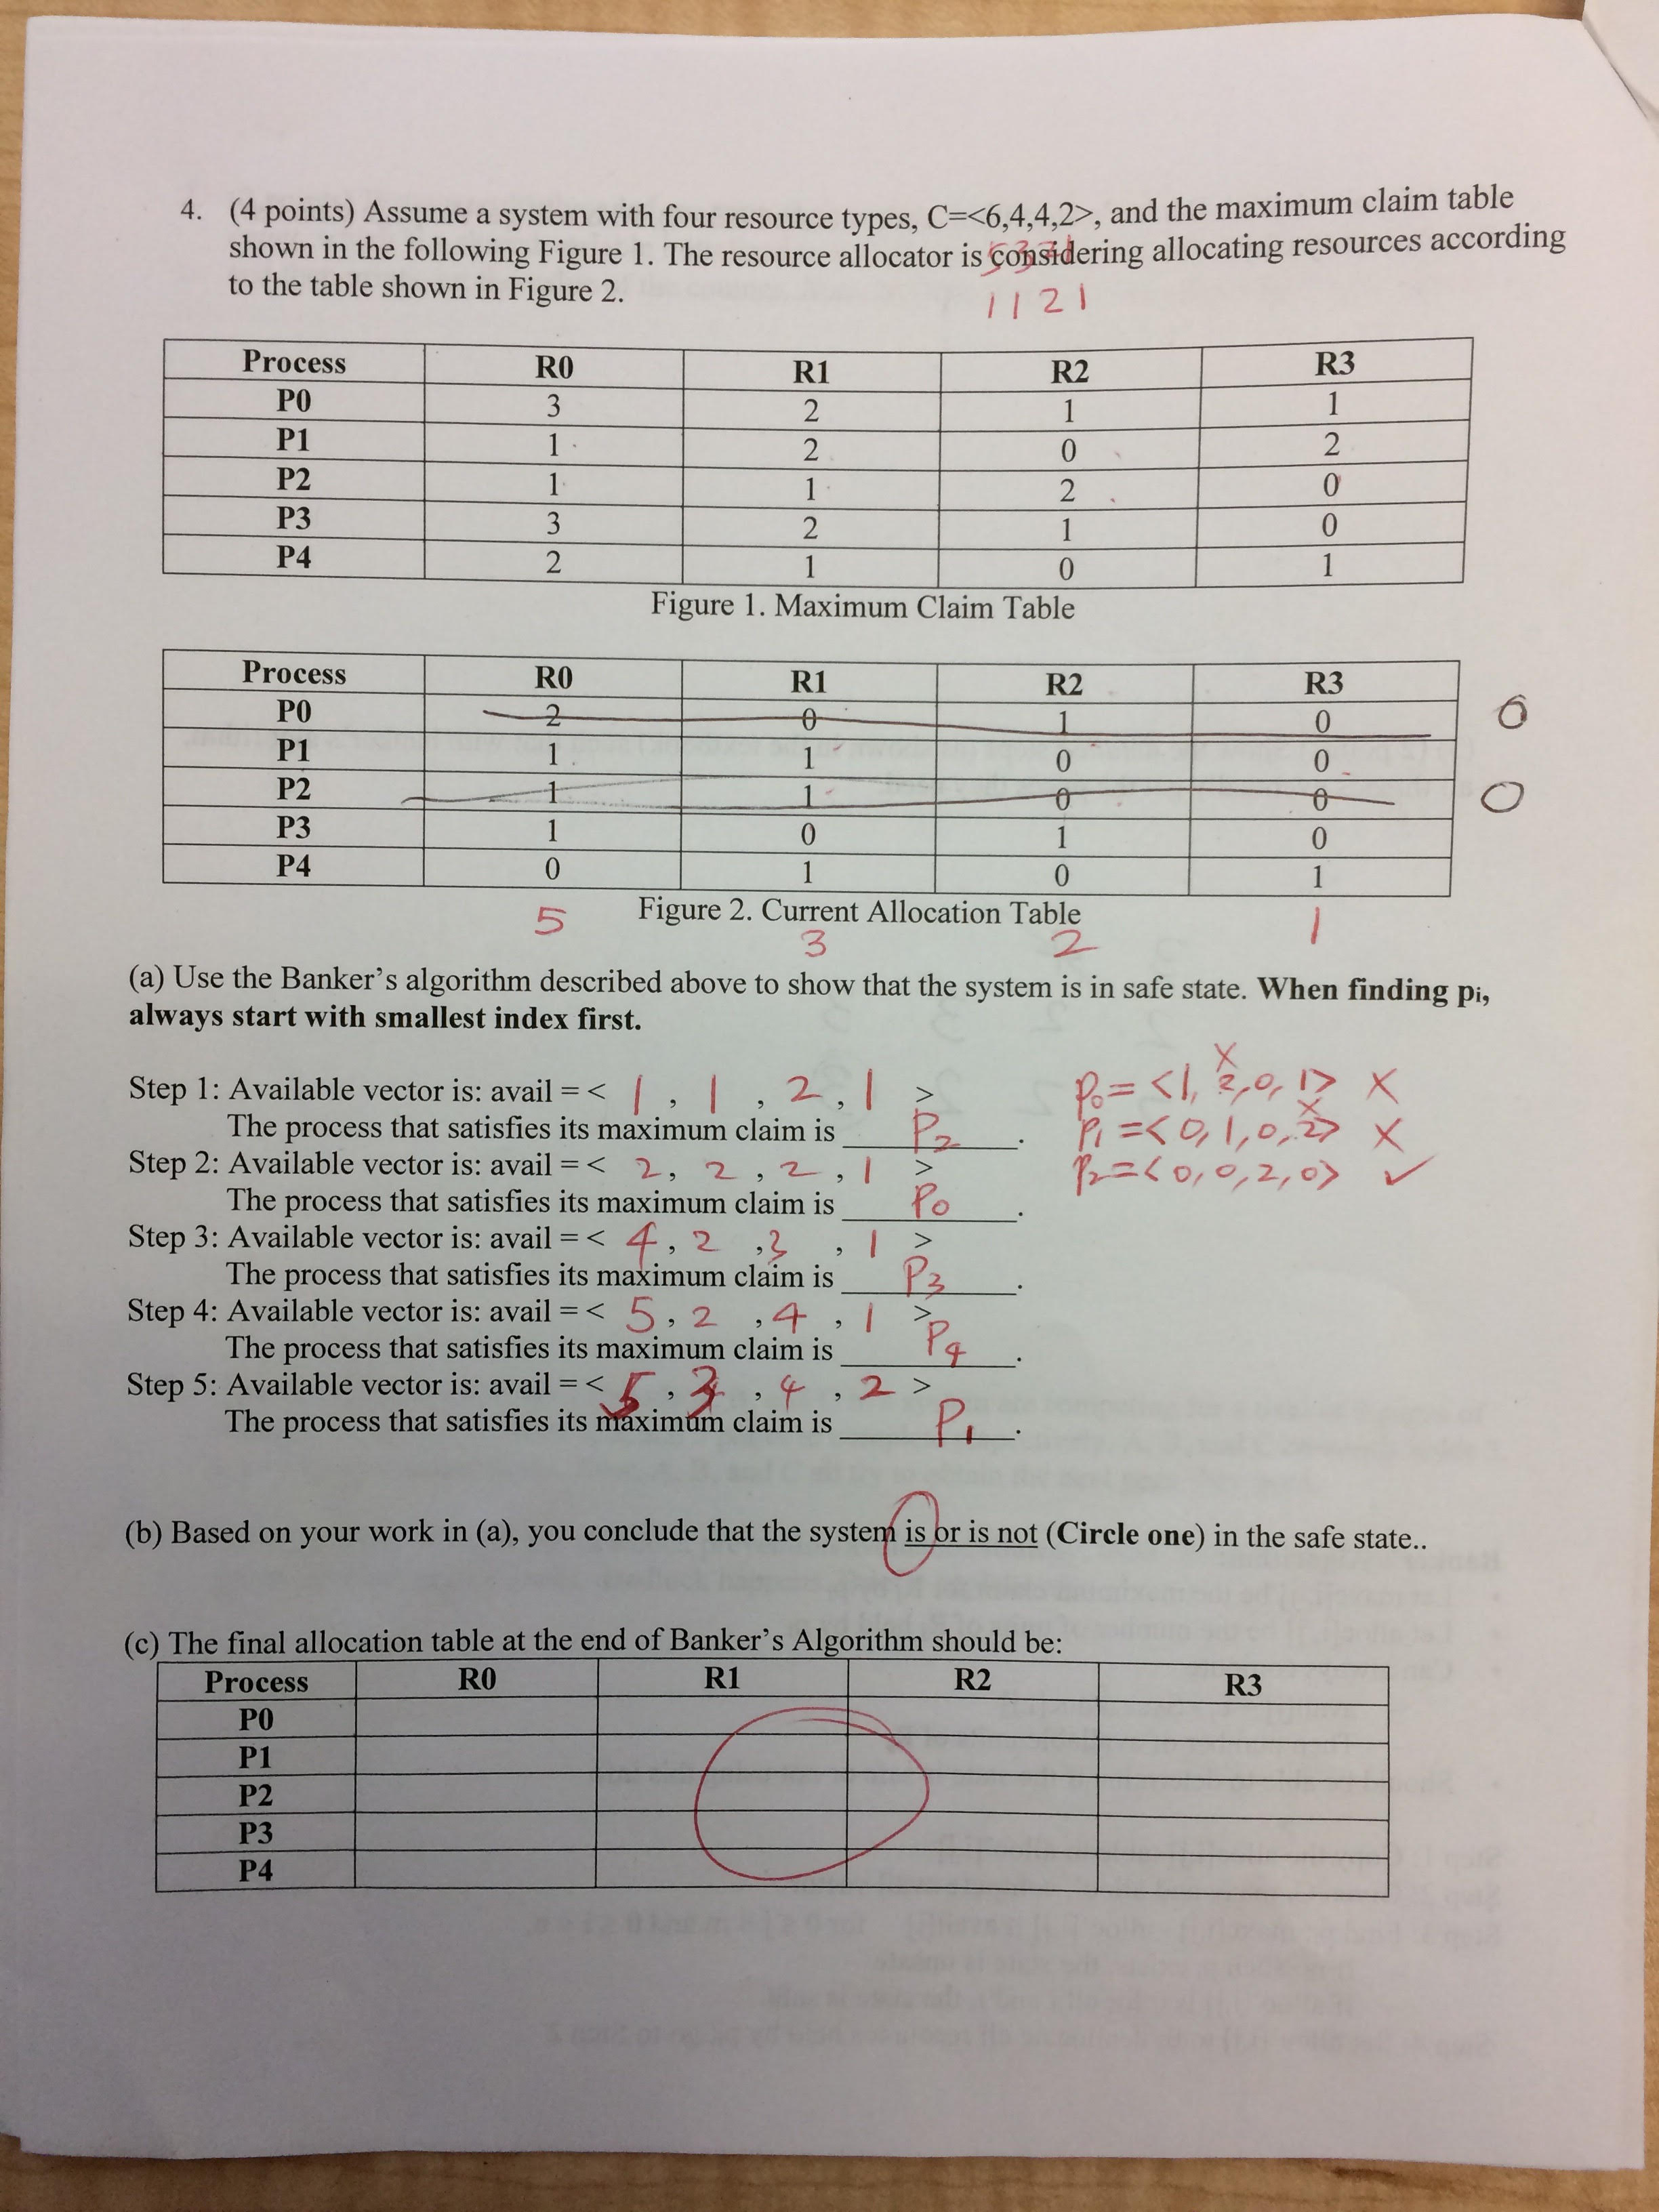 4. (4 points) Assume a system with four resource types, C=<6,4,4,2>, and the maximum claim table
shown in the following Figure 1. The resource allocator is considering allocating resources according
to the table shown in Figure 2.
1 1 2 1
Process R0 R1 R2 R3
P0 3 2 1 1
P1 1 2 0 2
P2 1 1 2 0
P3 3 2 1 0
P4 2 1 0 1
Figure 1. Maximum Claim Table
Process R0 R1 R2 R3
P0 2 0 1 0 0
P1 1 1 0 0
P2 1 1 0 0 0
P3 1 0 1 0
P4 0 1 0 1
Figure 2. Current Allocation Table
5 3 2 1
(a) Use the Banker's algorithm described above to show that the system is in safe state. When finding pi,
always start with smallest index first.
Step 1: Available vector is: avail = < 1 , 1 , 2 , 1 > P0 = <1, 2, 0, 1> X
The process that satisfies its maximum claim is P2 . P1 = <0, 1, 0, 2> X
Step 2: Available vector is: avail = < 2 , 2 , 2 , 1 > P2 = <0, 0, 2, 0> ✓
The process that satisfies its maximum claim is P0 .
Step 3: Available vector is: avail = < 4 , 2 , 3 , 1 >
The process that satisfies its maximum claim is P3 .
Step 4: Available vector is: avail = < 5 , 2 , 4 , 1 >
The process that satisfies its maximum claim is P4 .
Step 5: Available vector is: avail = < 5 , 3 , 4 , 2 >
The process that satisfies its maximum claim is P1 .
(b) Based on your work in (a), you conclude that the system is or is not (Circle one) in the safe state..
(c) The final allocation table at the end of Banker's Algorithm should be:
Process R0 R1 R2 R3
P0
P1
P2
P3
P4